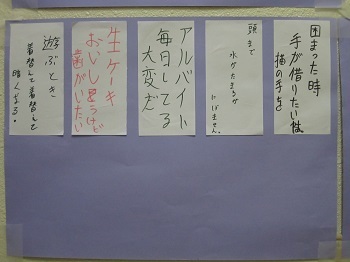 困まった時
手が借りたい性
猫の手を
頭まで
水がたまるが
にげません。
アルバイト
毎日してる
大変だ
生ケーキ
おいし思うけど
歯がいたい
遊ぶとき
着替して着替して
暗くなる。